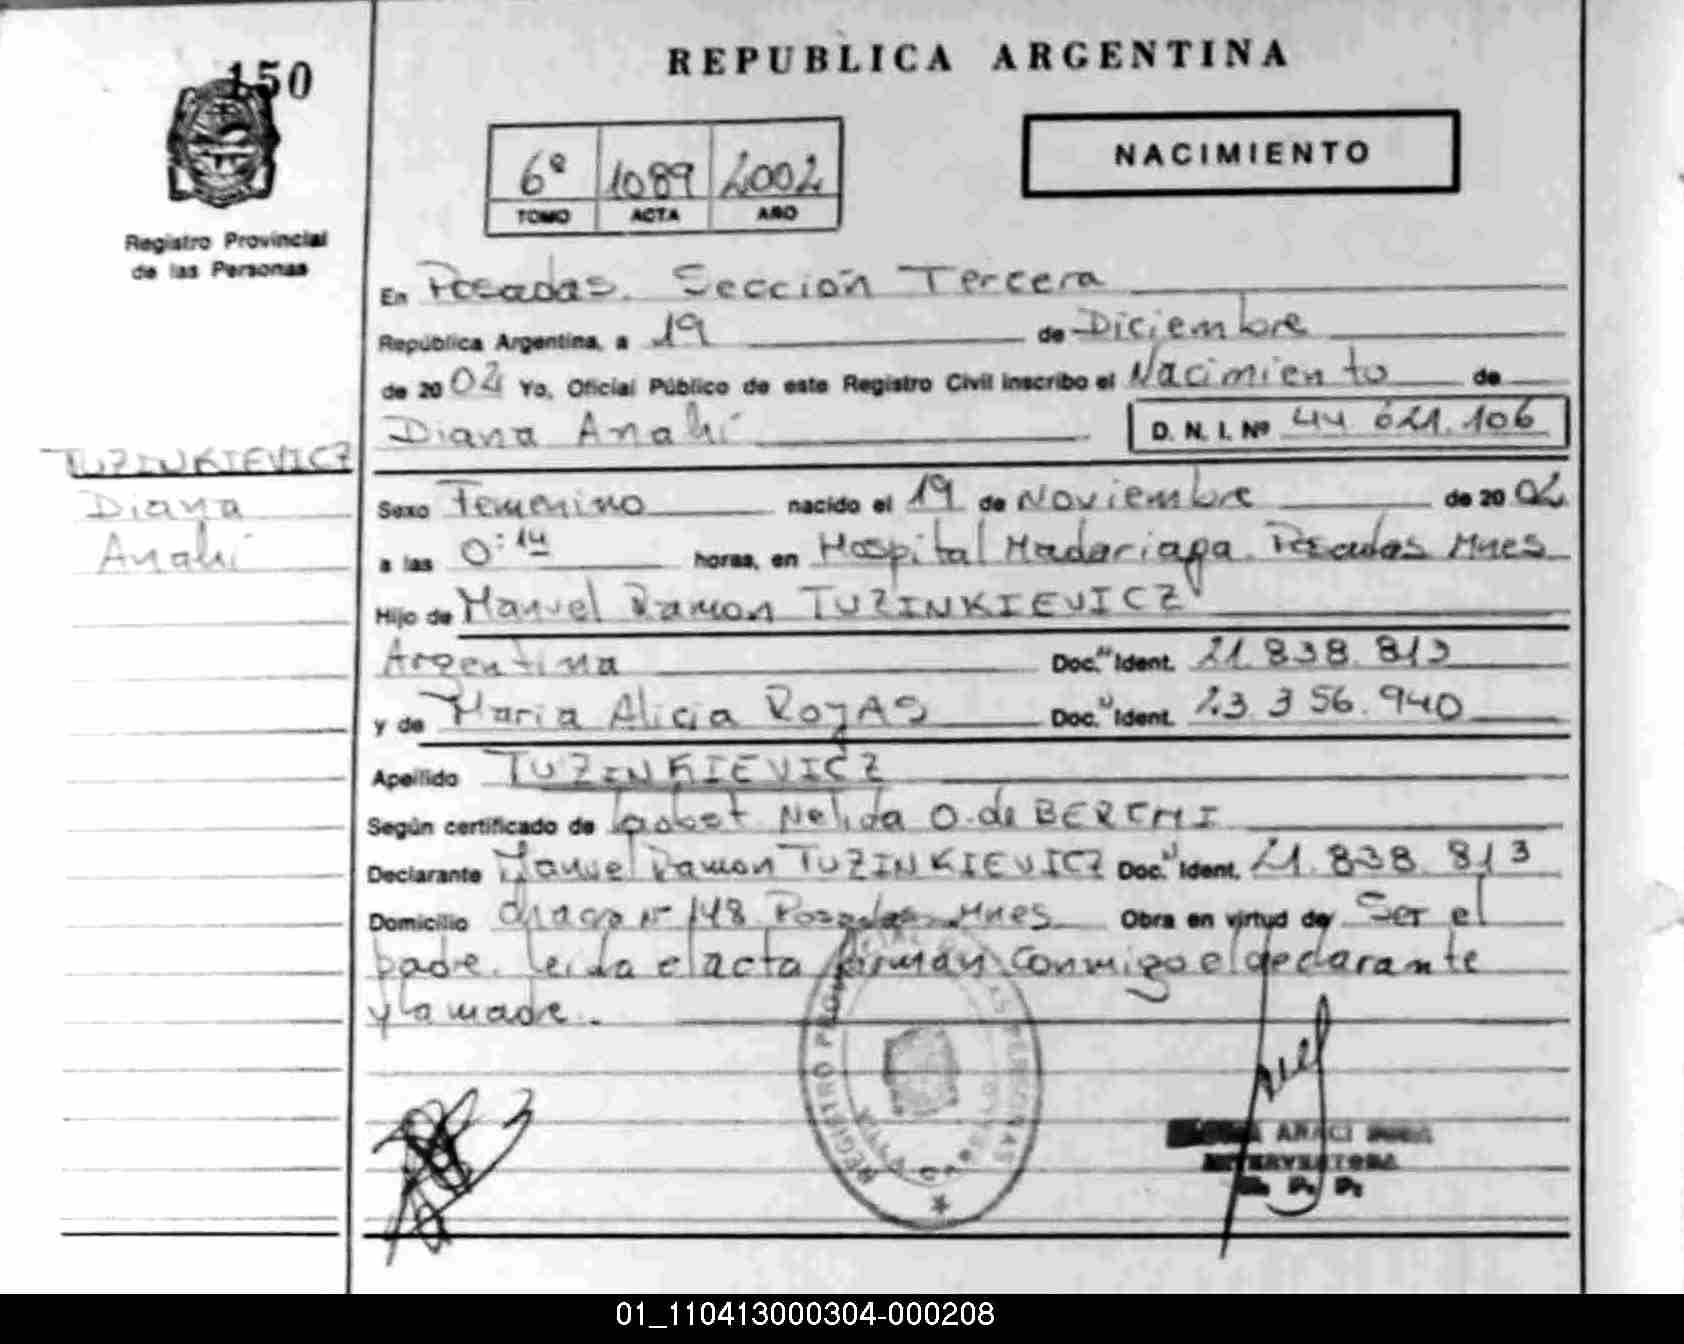 150
REPUBLICA ARGENTINA
6º 1089 2002
TOMO ACTA AÑO
NACIMIENTO
Registro Provincial
de las Personas
En Posadas. Sección Tercera
República Argentina, a 19 de Diciembre
de 2002 Yo, Oficial Público de este Registro Civil inscribo el Nacimiento de
Diana Anahí D. N. I. Nº 44 621.106
TUZINKIEVICZ
Diana
Anahí
Sexo Femenino nacido el 19 de Noviembre de 2002
a las 0:14 horas, en Hospital Madariaga. Posadas Mnes
Hijo de Manuel Ramon TUZINKIEVICZ
Argentina Doc. Ident. 21.838.813
y de Maria Alicia ROJAS Doc. Ident. 23.356.940
Apellido TUZINKIEVICZ
Según certificado de Nelida O. de
Declarante Manuel Ramon TUZINKIEVICZ Doc. Ident. 21.838.813
Domicilio Nº 148 Posadas Mnes Obra en virtud de Ser el
padre. leida el acta firman conmigo el declarante
y la madre.
REGISTRO PROVINCIAL DE LAS PERSONAS
INTERVENTORA
01_110413000304-000208